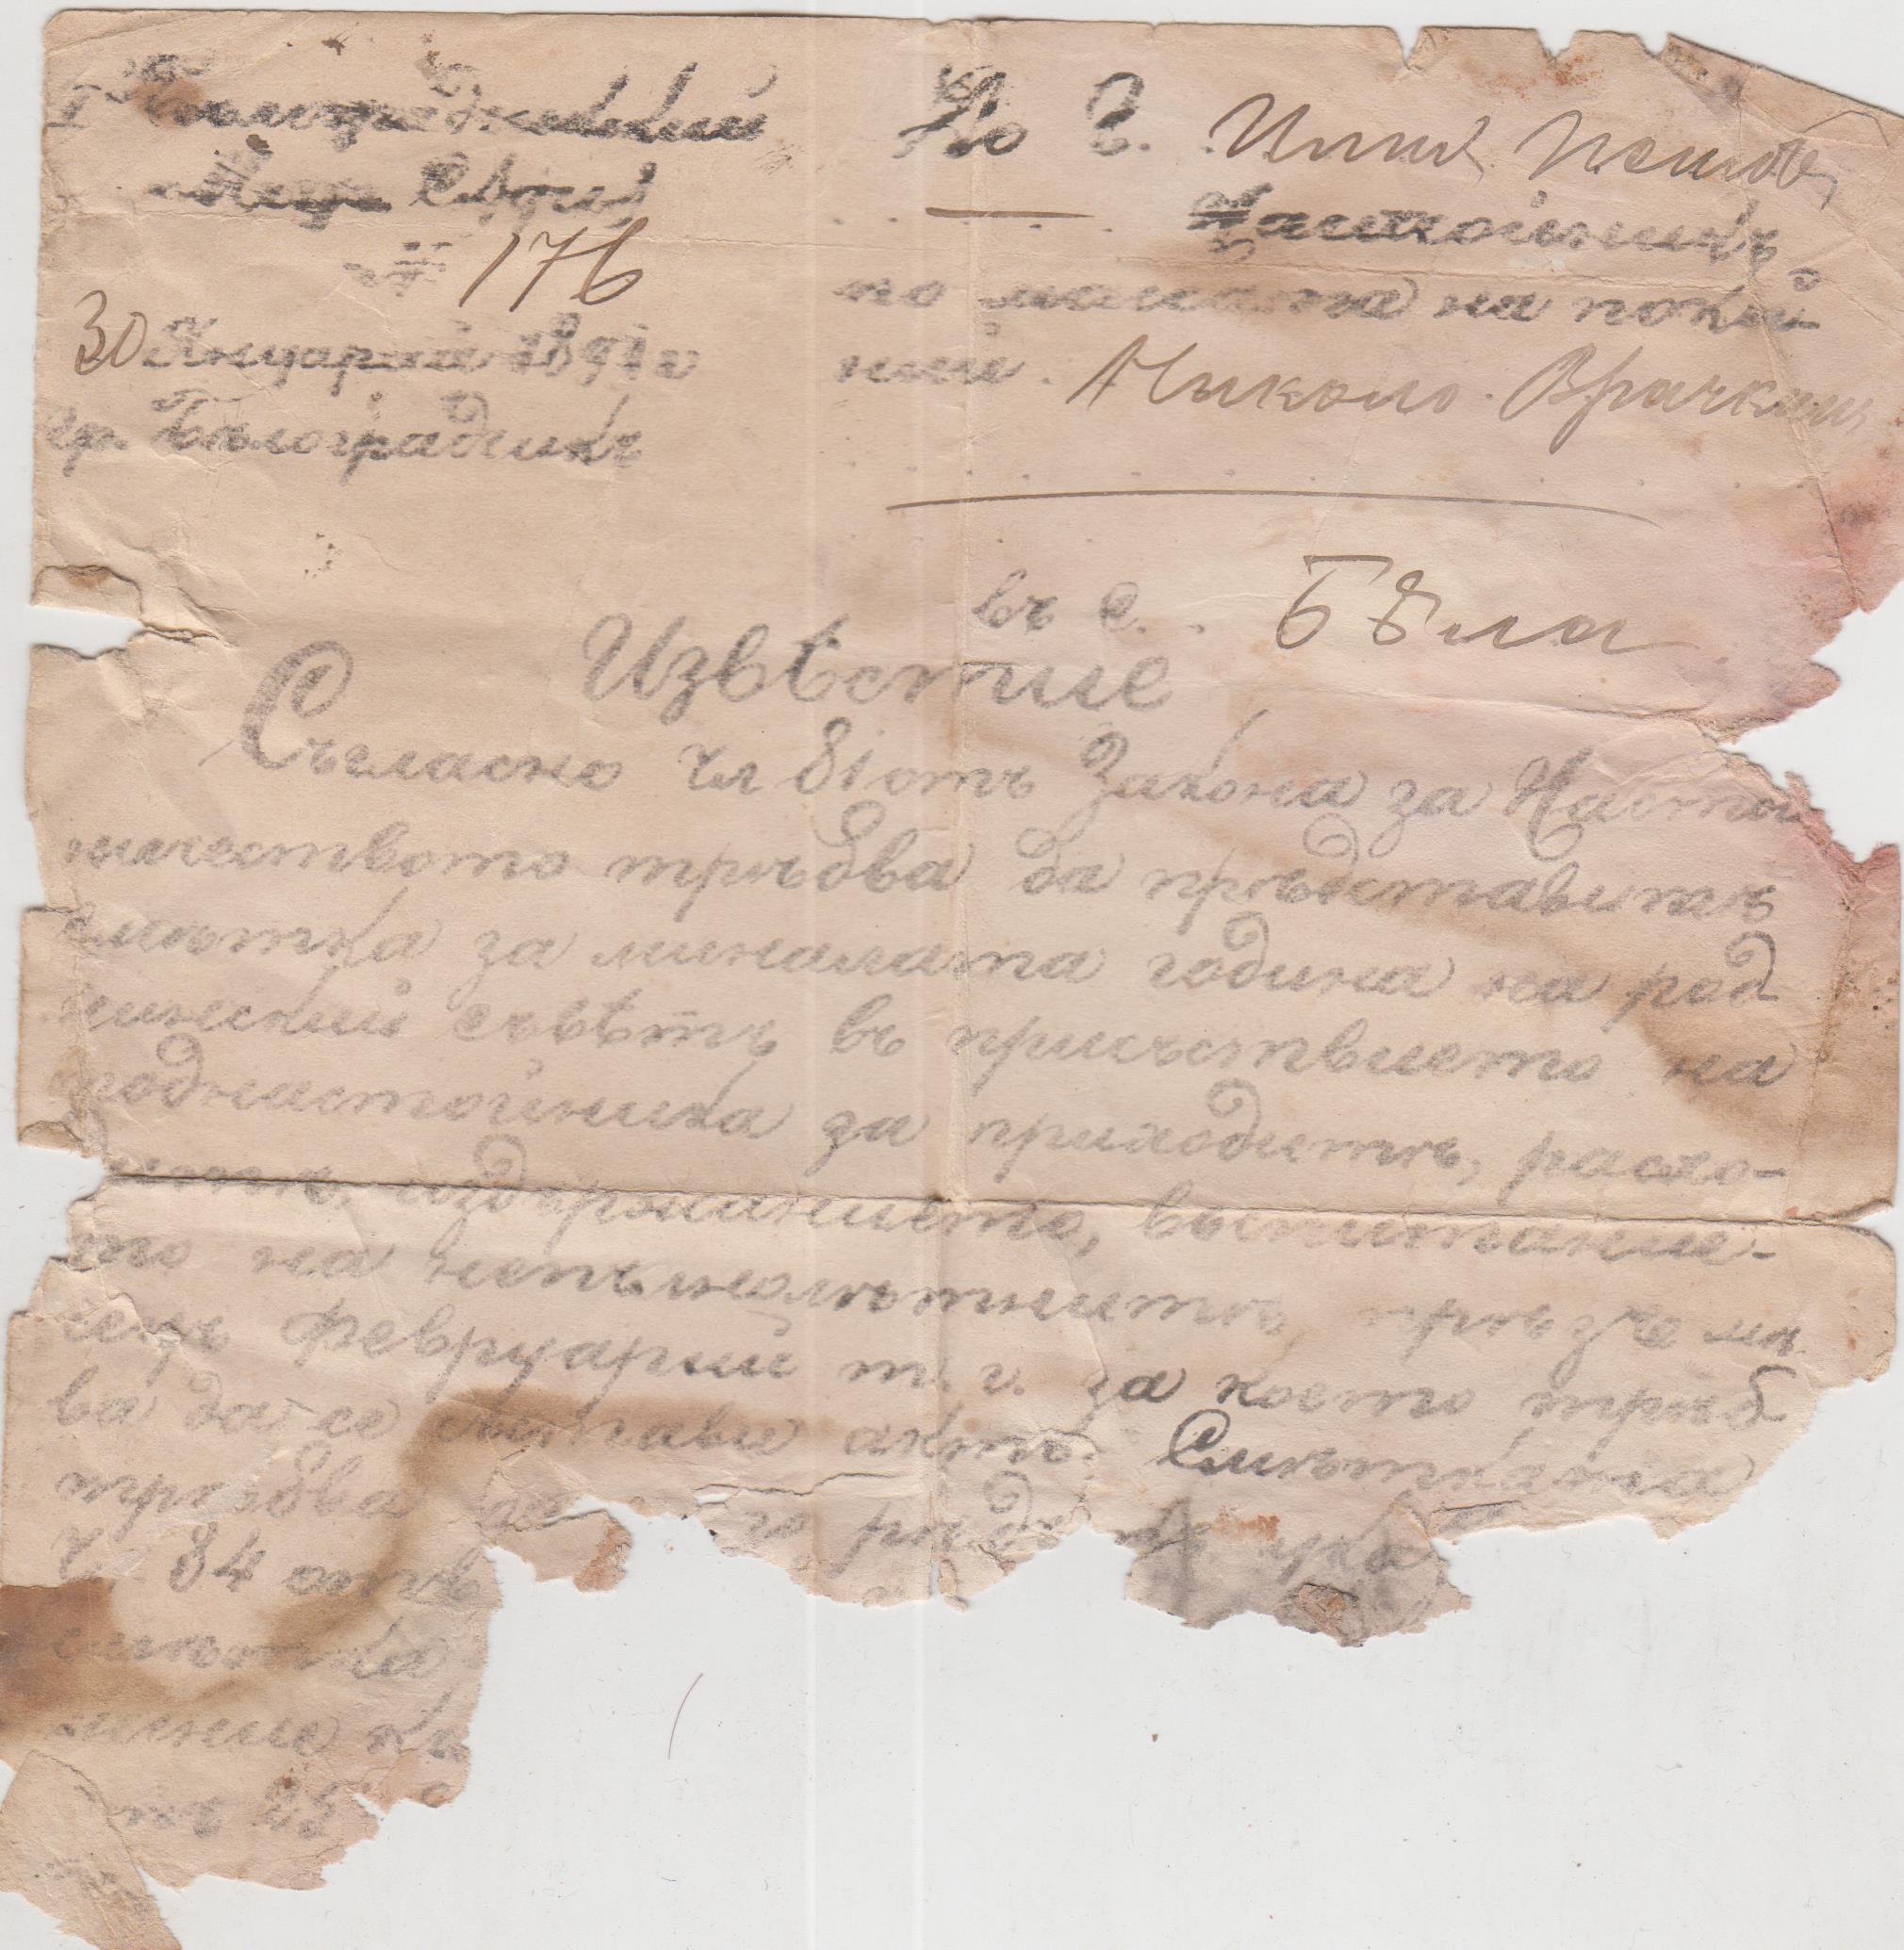 I Белоградчикский
Мир. Съдия
№ 176
30 Януарий 1891 г
гр. Бѣлоградчикъ
До Г. Илия Пешовъ
Настойникъ
по масата на покой-
ний Никола Врачкин
въ с. Бѣла
Извѣстие
Съгласно чл 81 отъ Закона за Настой
ничеството трѣбва да прѣдставите
смѣтка за миналата година на род
нинский съвѣтъ въ присъствието на
поднастойника за приходитѣ, расхо-
дитѣ, издържанието, въспитание-
то на непълнолѣтнитѣ прѣзъ ме
сецъ Февруарий т. г. за което трѣб
ва да се състави актъ. Смѣтката
трѣбва да
Чл 84 отъ
смѣтка
нение къ
тъ 25